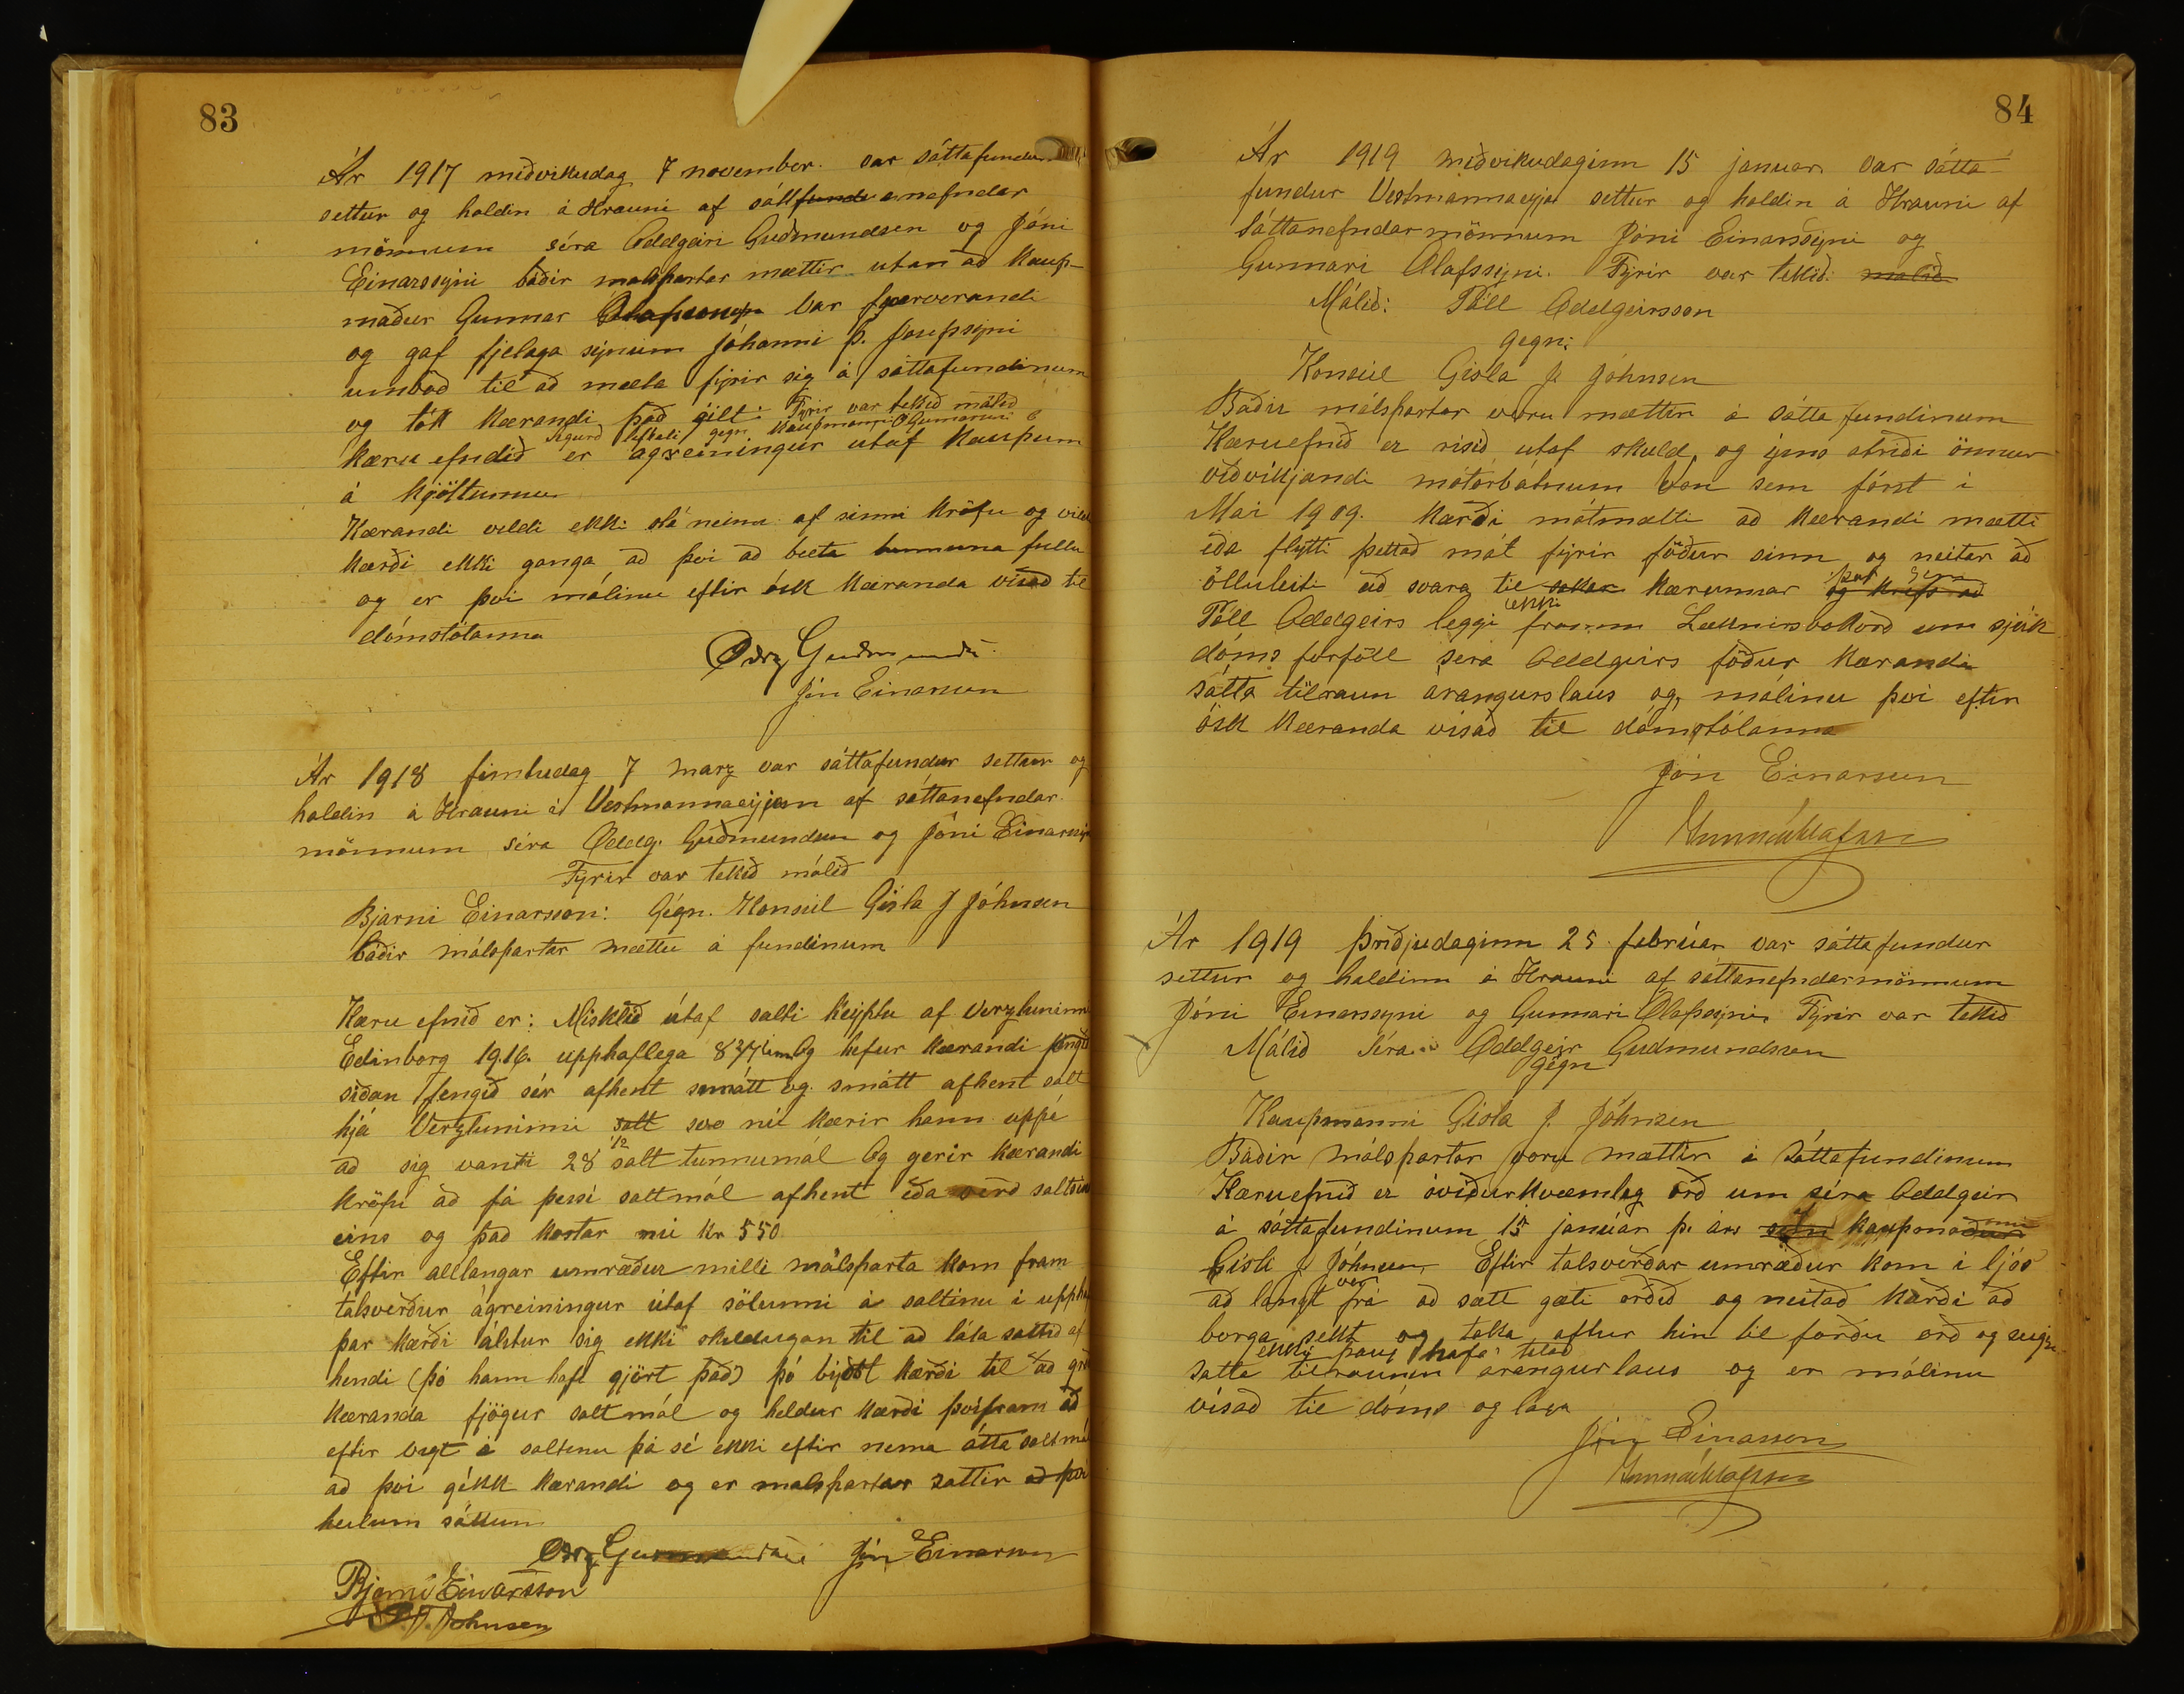 83
Ár 1917 miðvikudag 7 november. var sáttafundur
settur og haldin á Hrauni af sáttfundanefndar
mönnum séra Oddgeiri Guðmundsen og Jóni
Einarssyni báðir malspartar mættir utan að Kaup-
maður Gunnar Ólafsson var fjærverandi
og gaf fjelaga sýnum Jóhanni Þ. Josepssyni
umboð til að mæta fyrir sig á sáttafundinum
og tók Kærandi það gilt: Fyrir var tekið málið
Sigurð gegn Kaupmanni Gunnari Ó
kæru efndið er agreiningur utaf Kaupum
á Kjöttunnu
Kærandi vildi ekki slá neinu af sinni Kröfu og vildi
kærði ekki ganga að því að bæta tunnuna fullu
og er því málinu eftir ósk Kæranda vísað til
dómstólanna
Oddg Guðmunds
Jón Einarsson
Ár 1918 fimtudag 7 marz var sáttafundur settur og
haldin á Hrauni í Vestmannaeyjum af sáttanefndar
mönnum séra Oddg. Guðmundsen og Jóni Einarssyni
Fyrir var tekið málið
Bjarni Einarsson: Gégn. Konsúl Gísla J Jóhnsen
báðir málspartar mættu á fundinum
Kæru efnið er: Misklíð útaf salti keyptu af Verzluninni
Edinborg 1916. upphaflega Og hefur Kærandi fengið
síðan fengið sér afhent smátt og smátt afhent salt
hjá Verzluninni salt svo nú kærir hann uppá
að sig vanti 28 1/2 salt tunnumál Og gerir Kærandi
kröfu að fá þessi saltmál afhent eða verð saltsins
eins og það kostar nú kr 550
Eftir alllangar umræður milli málsparta kom fram
talsverður ágreiningur útaf sölunni á saltinu í upphafi
þar kærði álítur sig ekki skildugan til að láta saltið af
hendi (þó hann hafi gjört það) þó býðst kærði til að
Kæranda fjögur saltmál og heldur kærði þvífram að
eftir vigt á saltinu þá sé ekki eftir nema átta saltmál
að því gékk Kærandi og er malspartar sattir að því
heilum sáttum
Oddg Guðmundsen Jón Einarsson
Bjarni Einarsson
G.J. Johnsen
84
Ár 1919 miðvikudaginn 15 januar var sátta-
fundur Vestmannaeyja settur og haldin á Hrauni af
Sáttanefndarmönnum Jóni Einarssyni og
Gunnari Ólafssyni. Fyrir var tekið: malið
Málið: Páll Oddgeirsson
gegn:
Konsúl Gísla J. Jóhnsen
Báðir málspartar voru mættir á sáttafundinum
Kæruefnið er risið utaf skuld, og ýms atriði önnur
viðvíkjandi mótorbátnum Von sem fórst í
Mai 1909. Kærði mótmælti að Kærandi mætti
eða flytti þettað mál fyrir föður sinn og neitar að
ölluleiti að svara til saka kærunnar og krefs að
þar sem
Páll Oddgeirs leggi ekki framm Læknirsvottorð um sjúk
dóms forföll séra Oddgeirs föður Kæranda
sátta tilraun árangurslaus og, málinu því eftir
ósk Kæranda vísað til dómstólanna
Jón Einarsson
Gunnar Ólafsson
Ár 1919 þriðjudaginn 25. febrúar var sáttafundur
settur og haldinn á Hrauni af sáttanefndarmönnum
Jóni Einarssyni og Gunnari Ólafssyni, Fyrir var tekið
Málið Séra Oddgeir Guðmundsson
gégn
Kaupmanni Gísla J. Jóhnsen
Báðir málspartar voru mættir á Sáttafundinum
Kæruefnið er óviðurkvæmleg orð um séra Oddgeir
á sáttafundinum 15 janúar þ. árs Kaupmaður
Gísli J Jóhnsen Eftir talsverðar umræður kom í ljós
að langt var frá að sætt gæti orðið og neitað kærði að
borga sekt og taka aftur hin til færðu orð og seigir
ekki þaug hafa töluð
satta tilraunin arangurlaus og er málinu
vísað til dóms og laga
Jón Einarsson
Gunnar Ólafsson